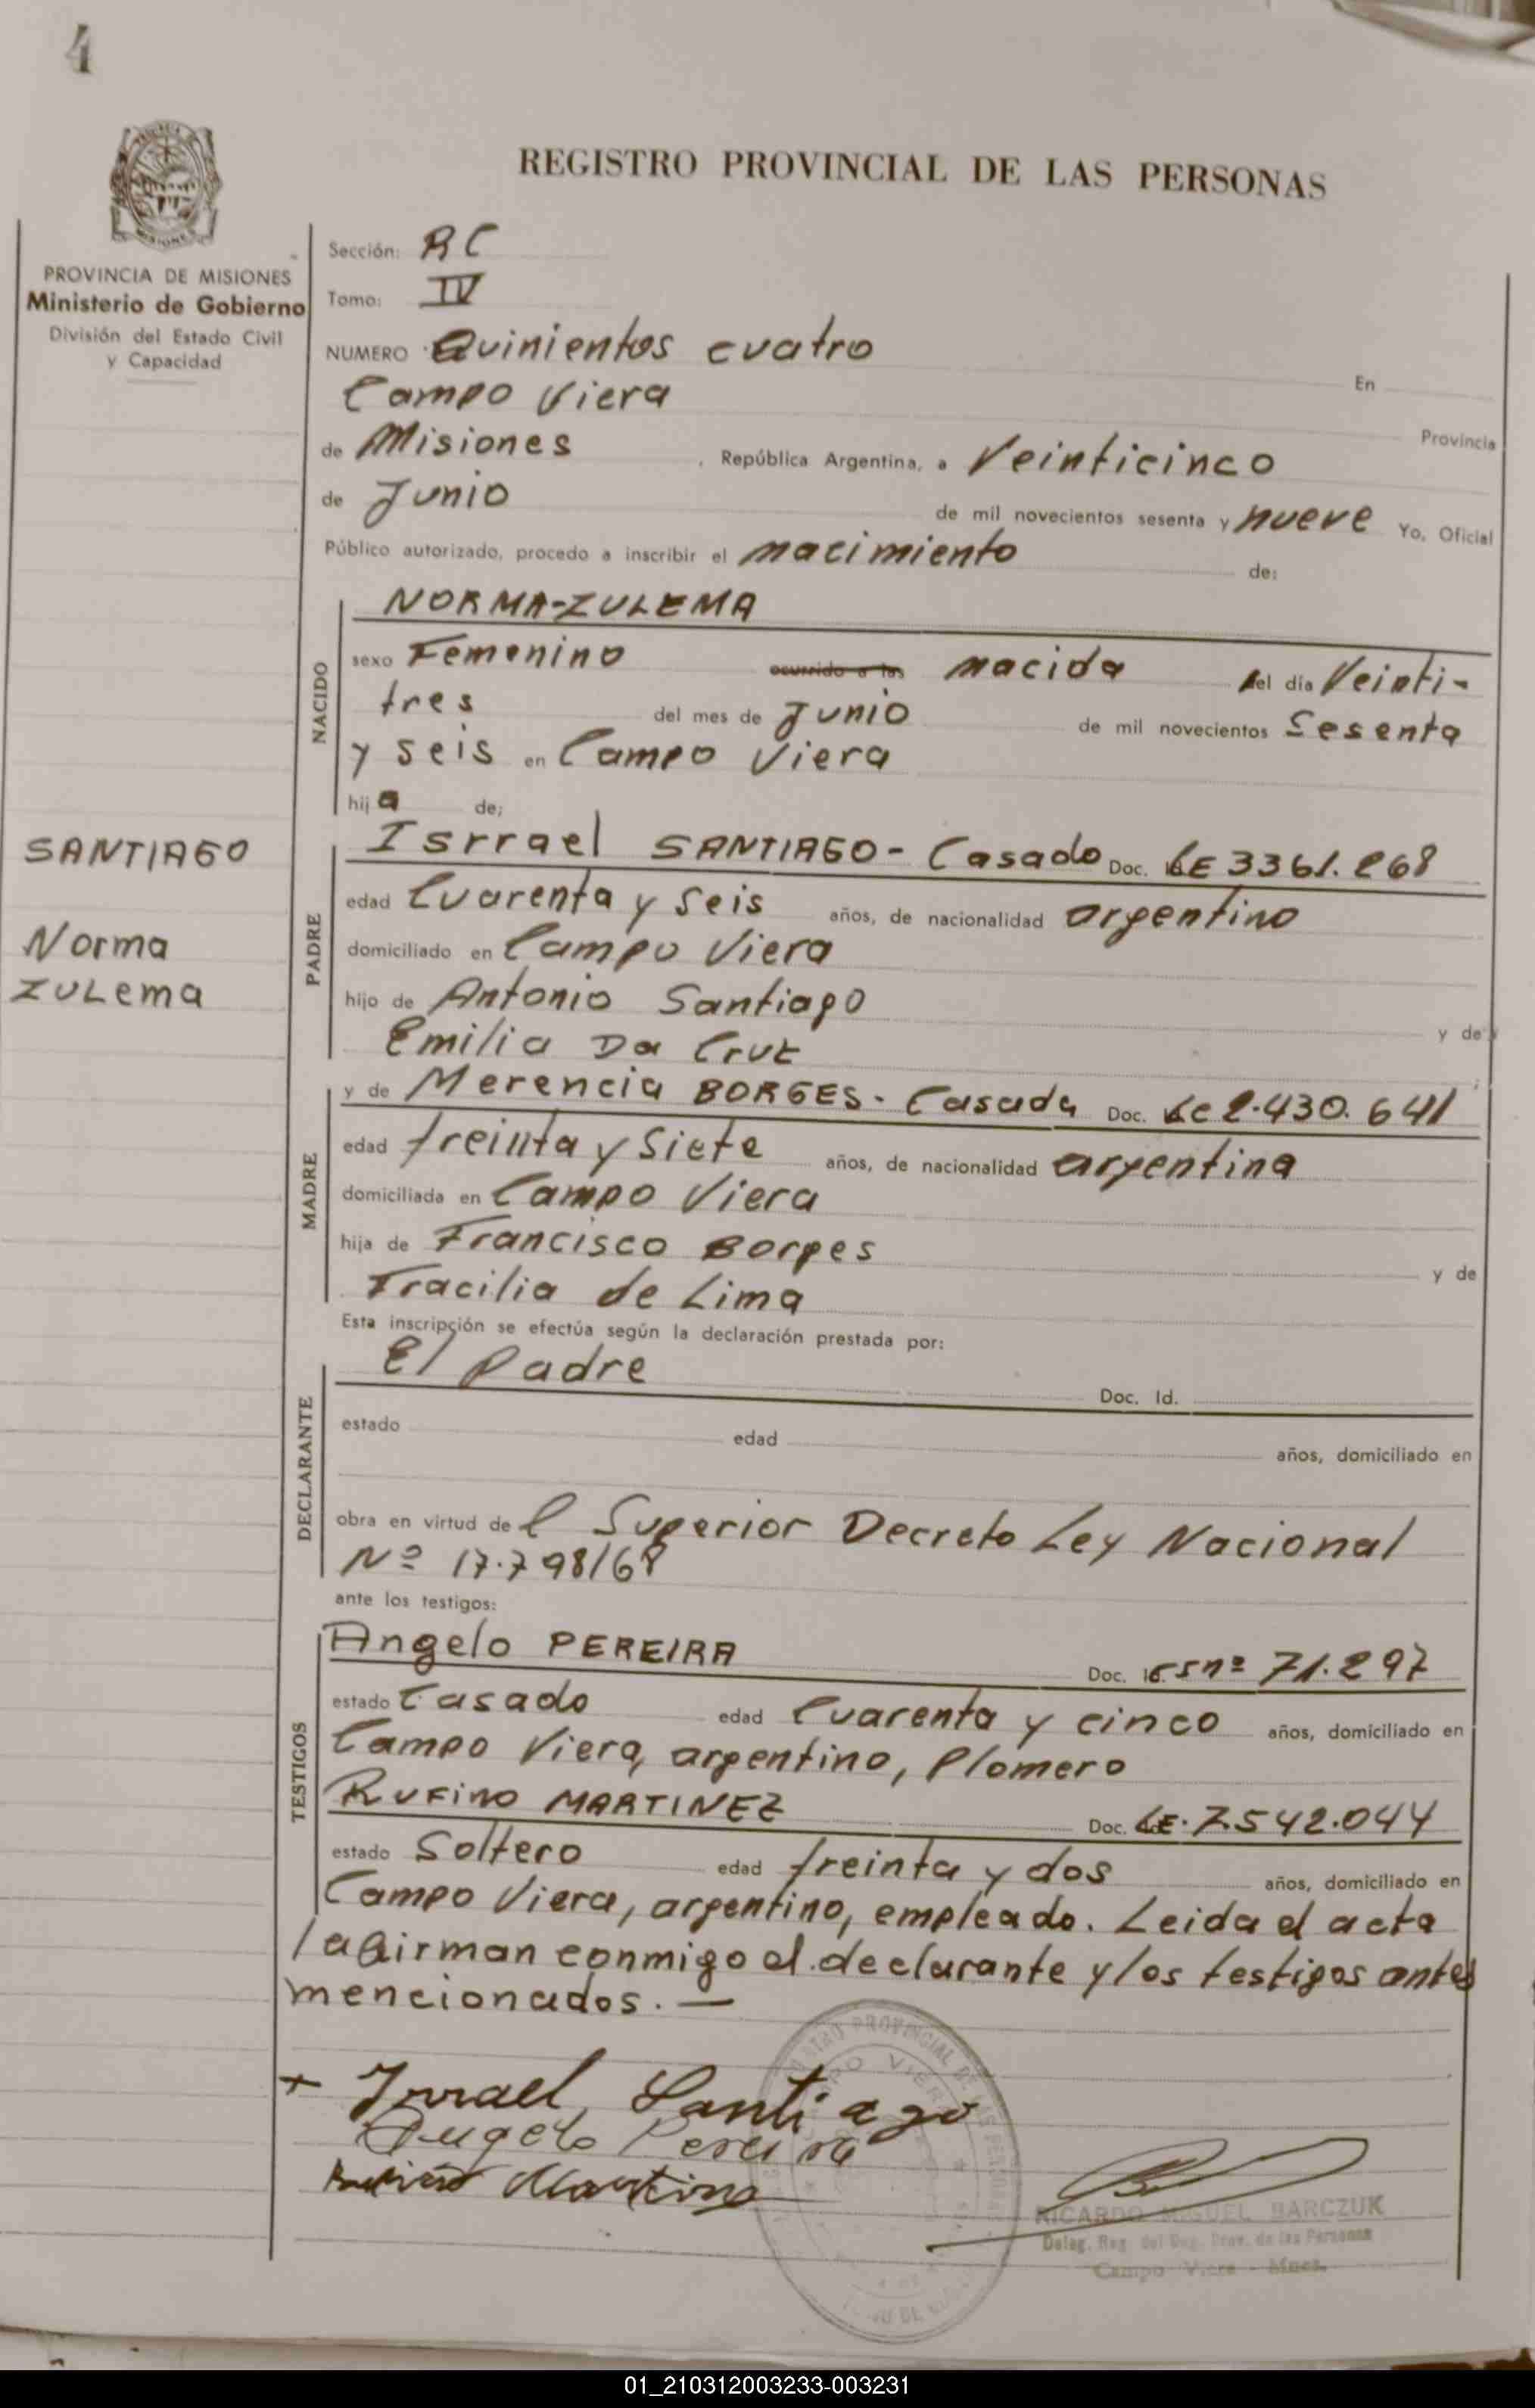 4
REGISTRO PROVINCIAL DE LAS PERSONAS
PROVINCIA DE MISIONES
Ministerio de Gobierno
División del Estado Civil
y Capacidad
Sección: RC
Tomo: IV
NUMERO Quinientos cuatro
En
Campo Viera
Provincia
de Misiones, República Argentina, a Veinticinco
de Junio de mil novecientos sesenta y nueve Yo, Oficial
Público autorizado, procedo a inscribir el nacimiento de:
NACIDO
NORMA-ZULEMA
sexo Femenino ocurrido a las nacida el día Veinti-
tres del mes de Junio de mil novecientos Sesenta
y seis en Campo Viera
hija de;
SANTIAGO
Norma
ZULema
PADRE
Isrrael SANTIAGO - Casado Doc. LE 3361.268
edad Cuarenta y Seis años, de nacionalidad argentino
domiciliado en Campo Viera
hijo de Antonio Santiago y de
Emilia Da Cruz
MADRE
y de Merencia BORGES - Casada Doc. LC 2.430.641
edad treinta y Siete años, de nacionalidad argentina
domiciliada en Campo Viera
hija de Francisco Borges y de
Fracilia de Lima
Esta inscripción se efectúa según la declaración prestada por:
DECLARANTE
El Padre Doc. Id.
estado edad años, domiciliado en
obra en virtud de l Superior Decreto Ley Nacional
Nº 17.798/68
ante los testigos:
TESTIGOS
Angelo PEREIRA Doc. nº 71.297
estado Casado edad Cuarenta y cinco años, domiciliado en
Campo Viera, argentino, Plomero
Rufino MARTINEZ Doc. LE. 7.542.044
estado Soltero edad treinta y dos años, domiciliado en
Campo Viera, argentino, empleado. Leida el acta
la firman conmigo el declarante y los testigos antes
mencionados. —
+ Isrrael Santiago
Angelo Pereira
RICARDO MIGUEL BARCZUK
Deleg. Reg. del Reg. Prov. de las Personas
Campo Viera - Mnes.
01_210312003233-003231